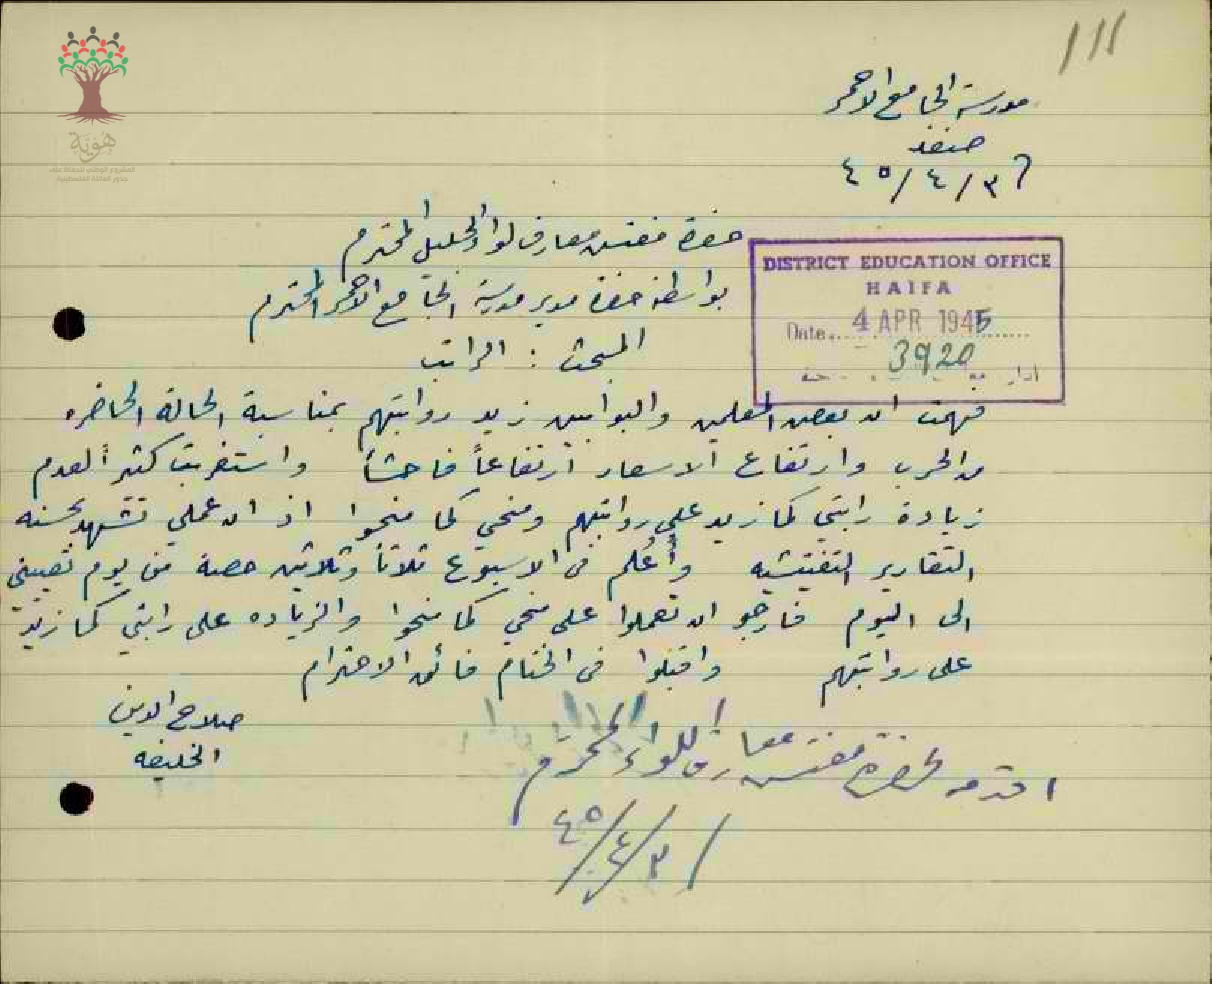 111
مدرسة الجامع الاحمر
صفد
٤٥/٤/٣
حضرة مفتش معارف لواء الجليل المحترم
بواسطة حضرة مدير مدرسة الجامع الاحمر المحترم
المبحث : الراتب
DISTRICT EDUCATION OFFICE
HAIFA
Date 4 APR 1945
3920
فهمت ان بعض المعلمين والبوابين زيد رواتبهم بمناسبة الحالة الحاضره
من الحرب وارتفاع الاسعار ارتفاعاً فاحشاً واستغربت كثيراً لعدم
زيادة راتبي كما زيد على رواتبهم ومنحي كما منحوا اذ ان عملي تشهد بحسنه
التقارير التفتيشيه وأُعلم في الاسبوع ثلاثا وثلاثين حصة من يوم تعييني
الى اليوم فارجو ان تعملوا على منحي كما منحوا والزياده على راتبي كما زيد
على رواتبهم واقبلوا في الختام فائق الاحترام
صلاح الدين
الخليفه
اقدمه لحضرة مفتش معارف اللواء المحترم
٤٥/٤/٣
هوية
المشروع الوطني للحفاظ على
جذور العائلة الفلسطينية